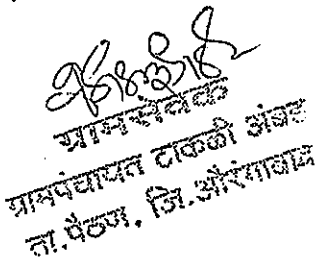 ग्रामसेवक
ग्रामपंचायत टाकळी अंबड
ता.पैठण. जि.औरंगाबाद